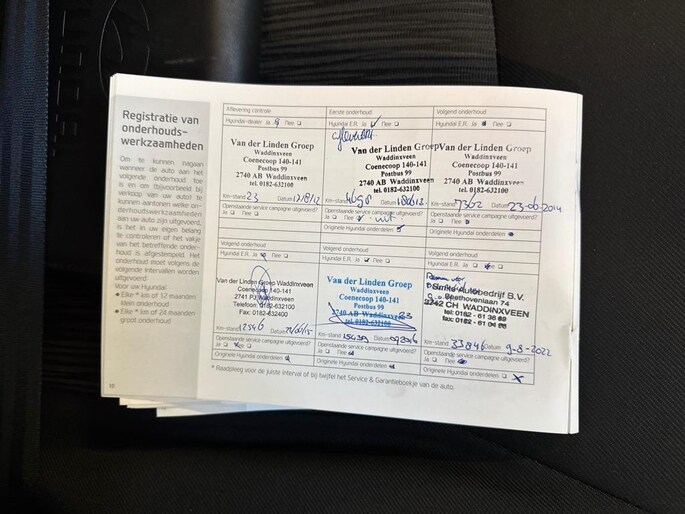 Registratie van
onderhouds-
werkzaamheden
Om te kunnen nagaan
wanneer de auto aan het
volgende onderhoud toe
is en om (bijvoorbeeld bij
verkoop van uw auto) te
kunnen aantonen welke on-
derhoudswerkzaamheden
aan uw auto zijn uitgevoerd,
is het in uw eigen belang
te controleren of het vakje
van het betreffende onder-
houd is afgestempeld. Het
onderhoud moet volgens de
volgende intervallen worden
uitgevoerd
Voor uw Hyundai:
• Elke * km of 12 maanden
klein onderhoud
• Elke * km of 24 maanden
groot onderhoud
10
Aflevering controle
Hyundai-dealer Ja Nee
Van der Linden Groep
Waddinxveen
Coenecoop 140-141
Postbus 99
2740 AB Waddinxveen
tel. 0182-632100
Km-stand 23 Datum
Openstaande service campagne uitgevoerd?
Ja Nee
Eerste onderhoud
Hyundai E.R. Ja Nee
Van der Linden Groep
Waddinxveen
Coenecoop 140-141
Postbus 99
2740 AB Waddinxveen
tel. 0182-632100
Km-stand Datum
Openstaande service campagne uitgevoerd?
Ja Nee
Originele Hyundai onderdelen
Volgend onderhoud
Hyundai E.R. Ja Nee
Van der Linden Groep
Waddinxveen
Coenecoop 140-141
Postbus 99
2740 AB Waddinxveen
tel. 0182-632100
Km-stand 7302 Datum 23-06-2014
Openstaande service campagne uitgevoerd?
Ja Nee
Originele Hyundai onderdelen
Volgend onderhoud
Hyundai E.R. Ja Nee
Van der Linden Groep
Waddinxveen
Coenecoop 140-141
2741 PJ Waddinxveen
Telefoon: 0182-632100
Fax: 0182-632400
Km-stand 12546 Datum
Openstaande service campagne uitgevoerd?
Ja Nee
Originele Hyundai onderdelen
Volgend onderhoud
Hyundai E.R. Ja Nee
Van der Linden Groep
Waddinxveen
Coenecoop 140-141
Postbus 99
2740 AB Waddinxveen
tel. 0182-632100
Km-stand Datum
Openstaande service campagne uitgevoerd?
Ja Nee
Originele Hyundai onderdelen
Volgend onderhoud
Hyundai E.R. Ja Nee
Smits Autobedrijf B.V.
Beethovenlaan 74
2742 CH WADDINXVEEN
tel: 0182 - 61
fax: 0182 - 61
Km-stand 33846 Datum 9-8-2022
Openstaande service campagne uitgevoerd?
Ja Nee
Originele Hyundai onderdelen
* Raadpleeg voor de juiste interval of bij twijfel het Service & Garantieboekje van de auto.